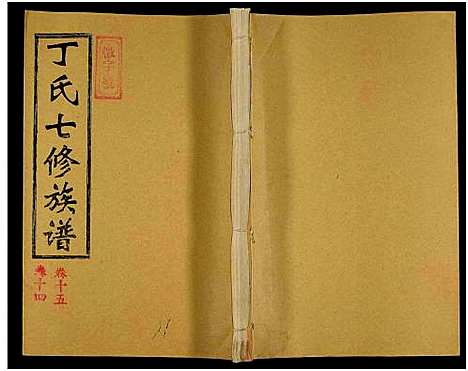 丁氏七修族谱
卷十四
卷十五